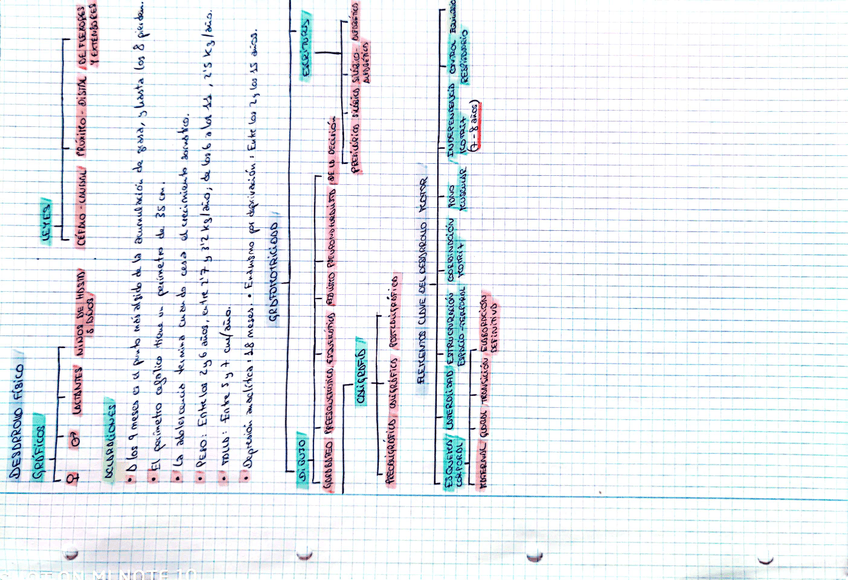 DESARROLLO FÍSICO
GRÁFICOS
LEYES
♀ ♂ LACTANTES NIÑOS DE HASTA
5 AÑOS
CÉFALO-CAUDAL PRÓXIMO-DISTAL DE FLEXORES
Y EXTENSORES
ACLARACIONES
• A los 9 meses es el punto más álgido de la acumulación de grasa, y hasta los 8 pierden.
• El perímetro cefálico tiene un perímetro de 35 cm.
• La adolescencia termina cuando cesa el crecimiento somático.
• PESO: Entre los 2 y 6 años, entre 2'7 y 3'2 kg/año, de los 6 a los 11, 2'5 kg/año.
• TALLA: Entre 5 y 7 cm/año.
• Depresión anaclítica: 18 meses. • Enanismo por deprivación: Entre los 2 y los 15 años.
GRAFOMOTRICIDAD
DIBUJO
ESCRITURAS
GARABATEO PREESQUEMÁTICO ESQUEMÁTICO REALISTA PSEUDONATURALISTA DE LA DECISIÓN
PRESILÁBICO SILÁBICO SILÁBICO- ALFABÉTICO
ALFABÉTICO
CALIGRAFÍA
PRECALIGRÁFICO CALIGRÁFICO POSTCALIGRÁFICO
ELEMENTOS CLAVE DEL DESARROLLO MOTOR
ESQUEMA LATERALIDAD ESTRUCTURACIÓN COORDINACIÓN TONO INDEPENDENCIA CONTROL EQUILIBRIO
CORPORAL ESPACIO-TEMPORAL MOTRIZ MUSCULAR MOTRIZ RESPIRATORIO
(7-8 años)
MATERNAL GLOBAL TRANSICIÓN ELABORACIÓN
DEFINITIVA
MI NOTE 10